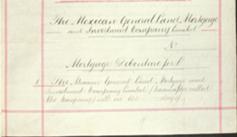 The Mexican General Land Mortgage
and Investment Company Limited
No
Mortgage Debenture for £
The Mexican General Land Mortgage and
Investment Company Limited (hereinafter called
the Company) will on the day of